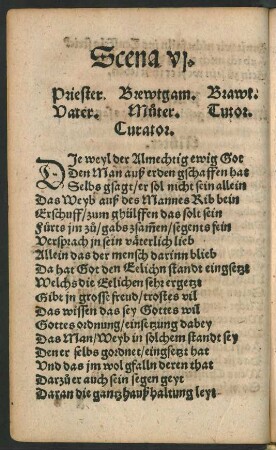 Scena vj.
Priester. Brewtgam. Brawt.
Vater. Můter. Tutor.
Curator.
DJe weyl der Almechtig ewig Got
Den Man auß erden gschaffen hat
Selbs gsagt / er sol nicht sein allein
Das Weyb auß des Mannes Rib bein
Erschuff / zum ghülffen das sol sein
Fürts jm zů / gabs zsamen / segents fein
Versprach jn sein väterlich lieb
Allein das der mensch darinn blieb
Da hat Got den Eelichn standt eingsetzt
Welchs die Eelichen sehr ergetzt
Gibt jn grosse freud / trostes vil
Das wissen das sey Gottes wil
Gottes ordnung / einsetzung dabey
Das Man / Weyb in solchem standt sey
Den er selbs gordnet / eingsetzt hat
Vnd das jm wol gfalln deren that
Darzů er auch sein segen geyt
Daran die gantz haußhaltung leyt